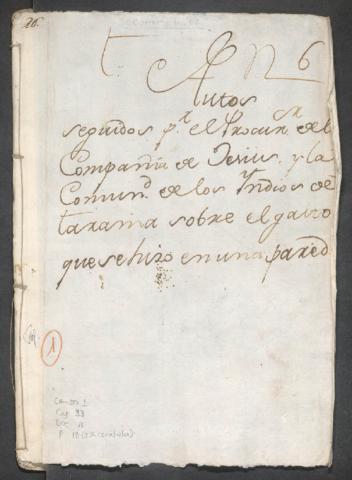 26.
t. A N 6
Autos
seguidos pr. el Procurr. del
Compañia de Jesus. y la
Comund. de los Yndios de
tarama sobre el gasto
que se hizo en una pared
1